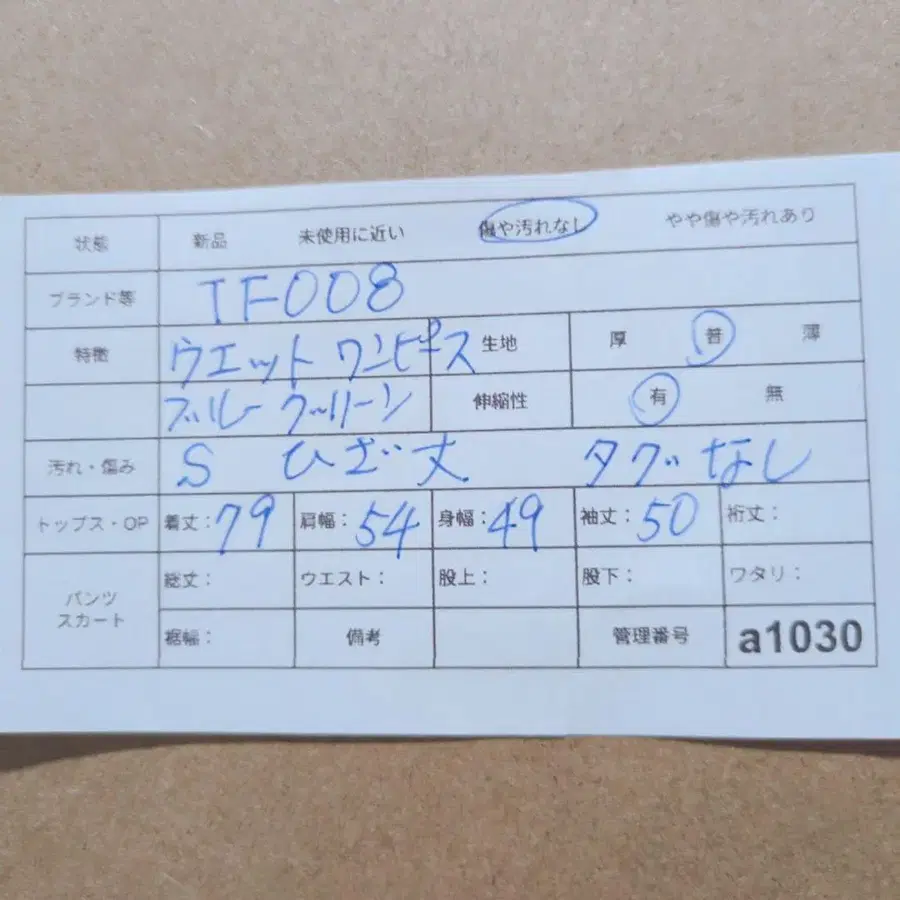 状態 新品 未使用に近い 傷や汚れなし やや傷や汚れあり
ブランド等 TF008
特徴 ウエット ワンピース 生地 厚 普 薄
ブルー グリーン 伸縮性 有 無
汚れ・傷み S ひざ丈 タグなし
トップス・OP 着丈：79 肩幅：54 身幅：49 袖丈：50 裄丈：
パンツ スカート 総丈： ウエスト： 股上： 股下： ワタリ：
裾幅： 備考 管理番号 a1030